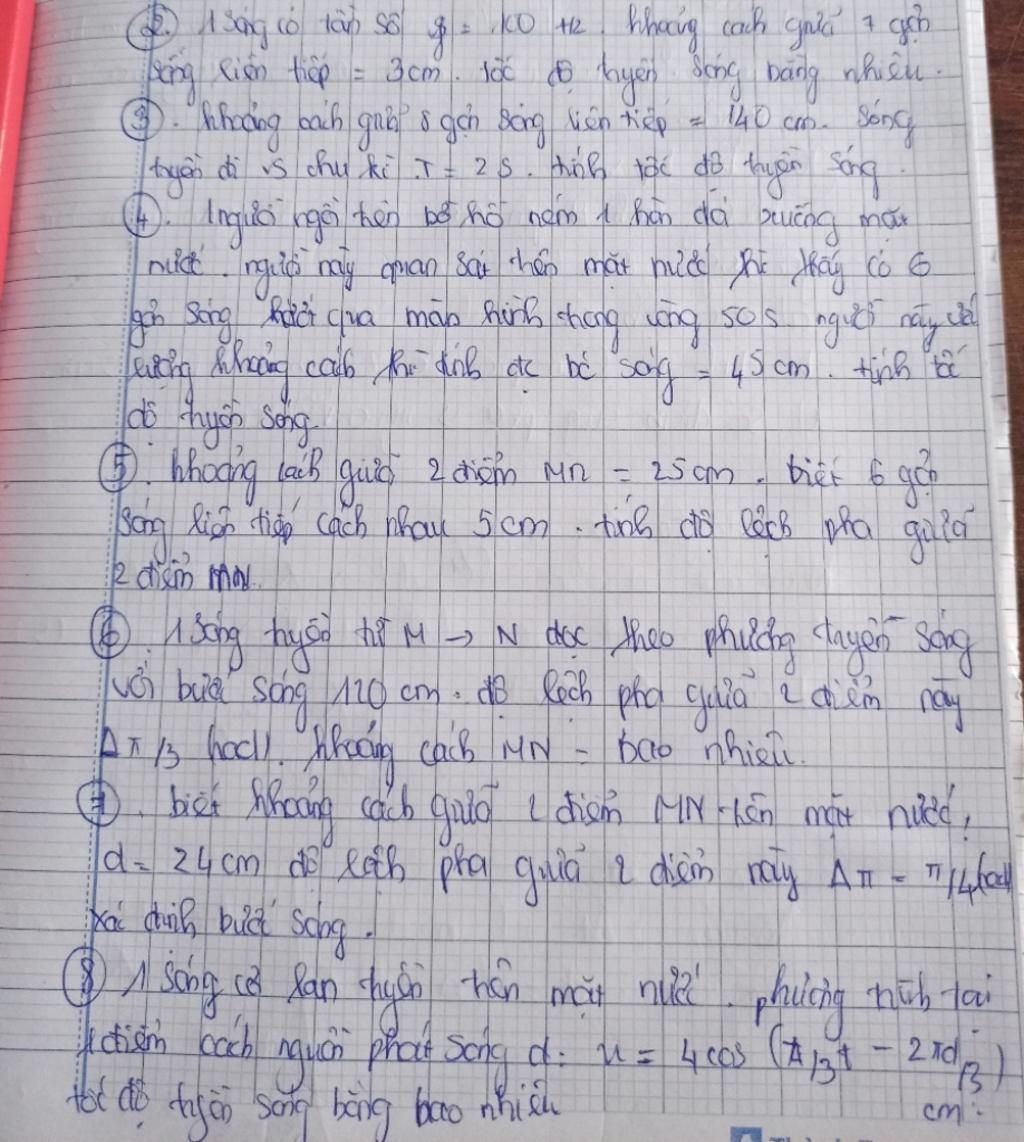 ②. 1 sóng có tần số f = 100 Hz. khoảng cách giữa 7 gợn
sóng liên tiếp = 3cm. tốc độ truyền sóng bằng nhiêu.
③. khoảng cách giữa 8 gợn sóng liên tiếp = 140 cm. sóng
truyền đi vs chu kì T = 2s. tính tốc độ truyền sóng.
④. 1 người ngồi trên bờ hồ ném 1 hòn đá xuống mặt
nước. người này quan sát trên mặt nước thì thấy có 6
gợn sóng qua màn hình trong vòng 50s người này
lường khoảng cách thì tính đc bc sóng = 45 cm. tính tốc
độ truyền sóng.
⑤. khoảng cách giữa 2 điểm MN = 25cm. biết 6 gợn
sóng liên tiếp cách nhau 5cm. tính độ lệch pha giữa
2 điểm MN.
⑥. 1 sóng truyền từ M → N dọc theo phương truyền sóng
với bước sóng 120 cm. độ lệch pha giữa 2 điểm này
Δπ/3 . khoảng cách MN = bao nhiêu.
⑦. biết khoảng cách giữa 2 điểm MN trên mặt nước,
d = 24cm độ lệch pha giữa 2 điểm này Δπ = π/4
xác định bước sóng.
⑧ 1 sóng cơ lan truyền trên mặt nước. phương trình tại
1 điểm cách nguồn phát sóng d: u = 4cos (π/3t - 2πd/3)
tốc độ truyền sóng bằng bao nhiêu cm.